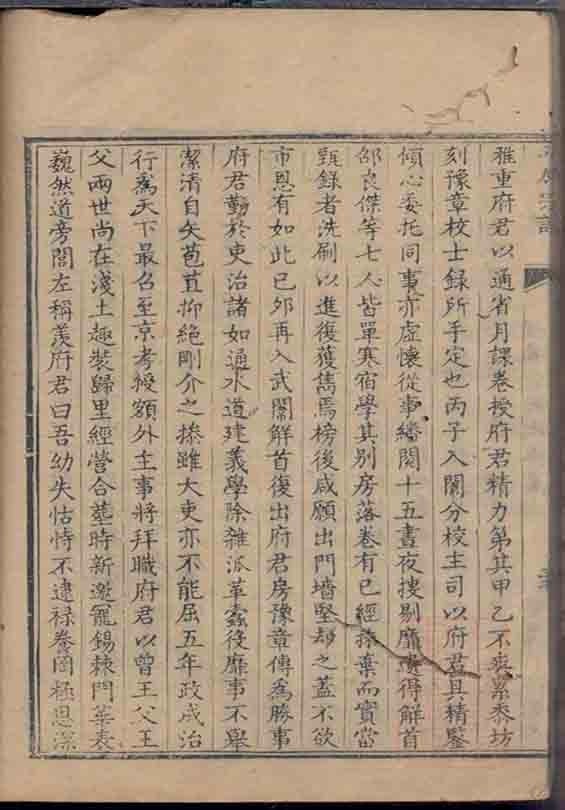 雅重府君以通省月課卷授府君精力第其甲乙不爽累黍坊
刻豫章校士錄所手定也丙子入闈分校主司以府君具精鑒
傾心委托同事亦虛懷從事繙閱十五晝夜搜剔靡遺得解首
邵良傑等七人皆單寒宿學其別房落卷有已經捺棄而實當
甄錄者洗刷以進復獲雋焉榜後咸願出門墻堅却之蓋不欲
市恩有如此己卯再入武闈解首復出府君房豫章傳為勝事
府君勤於吏治諸如通水道建義學除雜派革蠧役靡事不舉
潔清自矢苞苴抑絕剛介之操雖大吏亦不能屈五年政成治
行為天下最召至京考授額外主事將拜職府君以曾王父王
父兩世尚在淺土趣裝歸里經營合塟時新邀寵錫棘門華表
巍然道旁閭左稱羡府君曰吾幼失怙恃不逮祿養罔極恩深